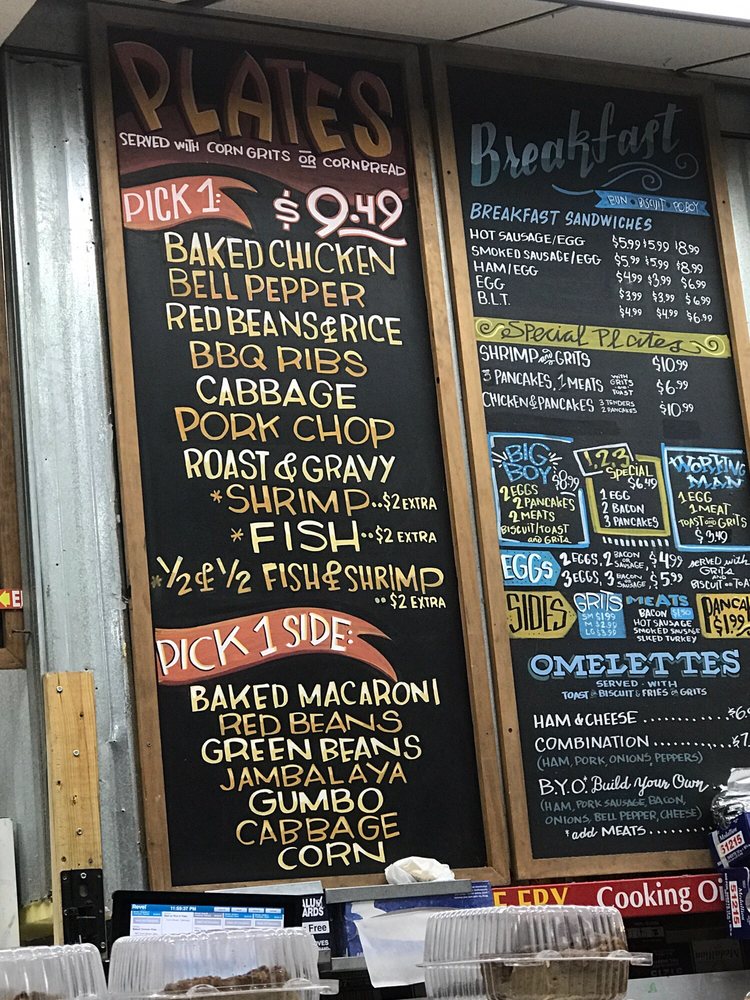 PLATES
SERVED WITH CORN GRITS OR CORNBREAD
PICK 1: $9.49
BAKED CHICKEN
BELL PEPPER
RED BEANS & RICE
BBQ RIBS
CABBAGE
PORK CHOP
ROAST & GRAVY
*SHRIMP..$2 EXTRA
*FISH..$2 EXTRA
*½ & ½ FISH & SHRIMP
..$2 EXTRA
PICK 1 SIDE:
BAKED MACARONI
RED BEANS
GREEN BEANS
JAMBALAYA
GUMBO
CABBAGE
CORN
Breakfast
BUN • BISCUIT • PO BOY
BREAKFAST SANDWICHES
HOT SAUSAGE/EGG $5.99 $5.99 $8.99
SMOKED SAUSAGE/EGG $5.99 $5.99 $8.99
HAM/EGG $4.99 $3.99 $6.99
EGG $3.99 $3.99 $6.99
B.L.T. $4.99 $4.99 $6.99
Special Plates
SHRIMP AND GRITS $10.99
3 PANCAKES, 1 MEATS WITH GRITS AND TOAST $6.99
CHICKEN & PANCAKES 3 TENDERS 2 PANCAKES $10.99
BIG BOY $8.99
2 EGGS
2 PANCAKES
2 MEATS
BISCUIT/TOAST
AND GRITS
1,2,3
SPECIAL
$6.49
1 EGG
2 BACON
3 PANCAKES
WORKING MAN
1 EGG
1 MEAT
TOAST AND GRITS
$3.49
EGGS
2 EGGS, 2 BACON OR SAUSAGE, $4.99
3 EGGS, 3 BACON OR SAUSAGE $5.99
SERVED WITH
GRITS
AND
BISCUIT OR TOA
SIDES
GRITS
SM $1.99
M $2.99
LG $3.99
MEATS
BACON $1.50
HOT SAUSAGE
SMOKED SAUSAGE
SLICED TURKEY
PANCA
$1.99
OMELETTES
SERVED • WITH
TOAST OR BISCUIT & FRIES OR GRITS
HAM & CHEESE ........ $6
COMBINATION ........ $7
(HAM, PORK, ONIONS, PEPPERS)
B.Y.O. Build Your Own
(HAM, PORK SAUSAGE, BACON,
ONIONS, BELL PEPPER, CHEESE)
* add MEATS......
E FRY Cooking O
Revel 11:59:37 PM
ARDS
Free
51215
51215